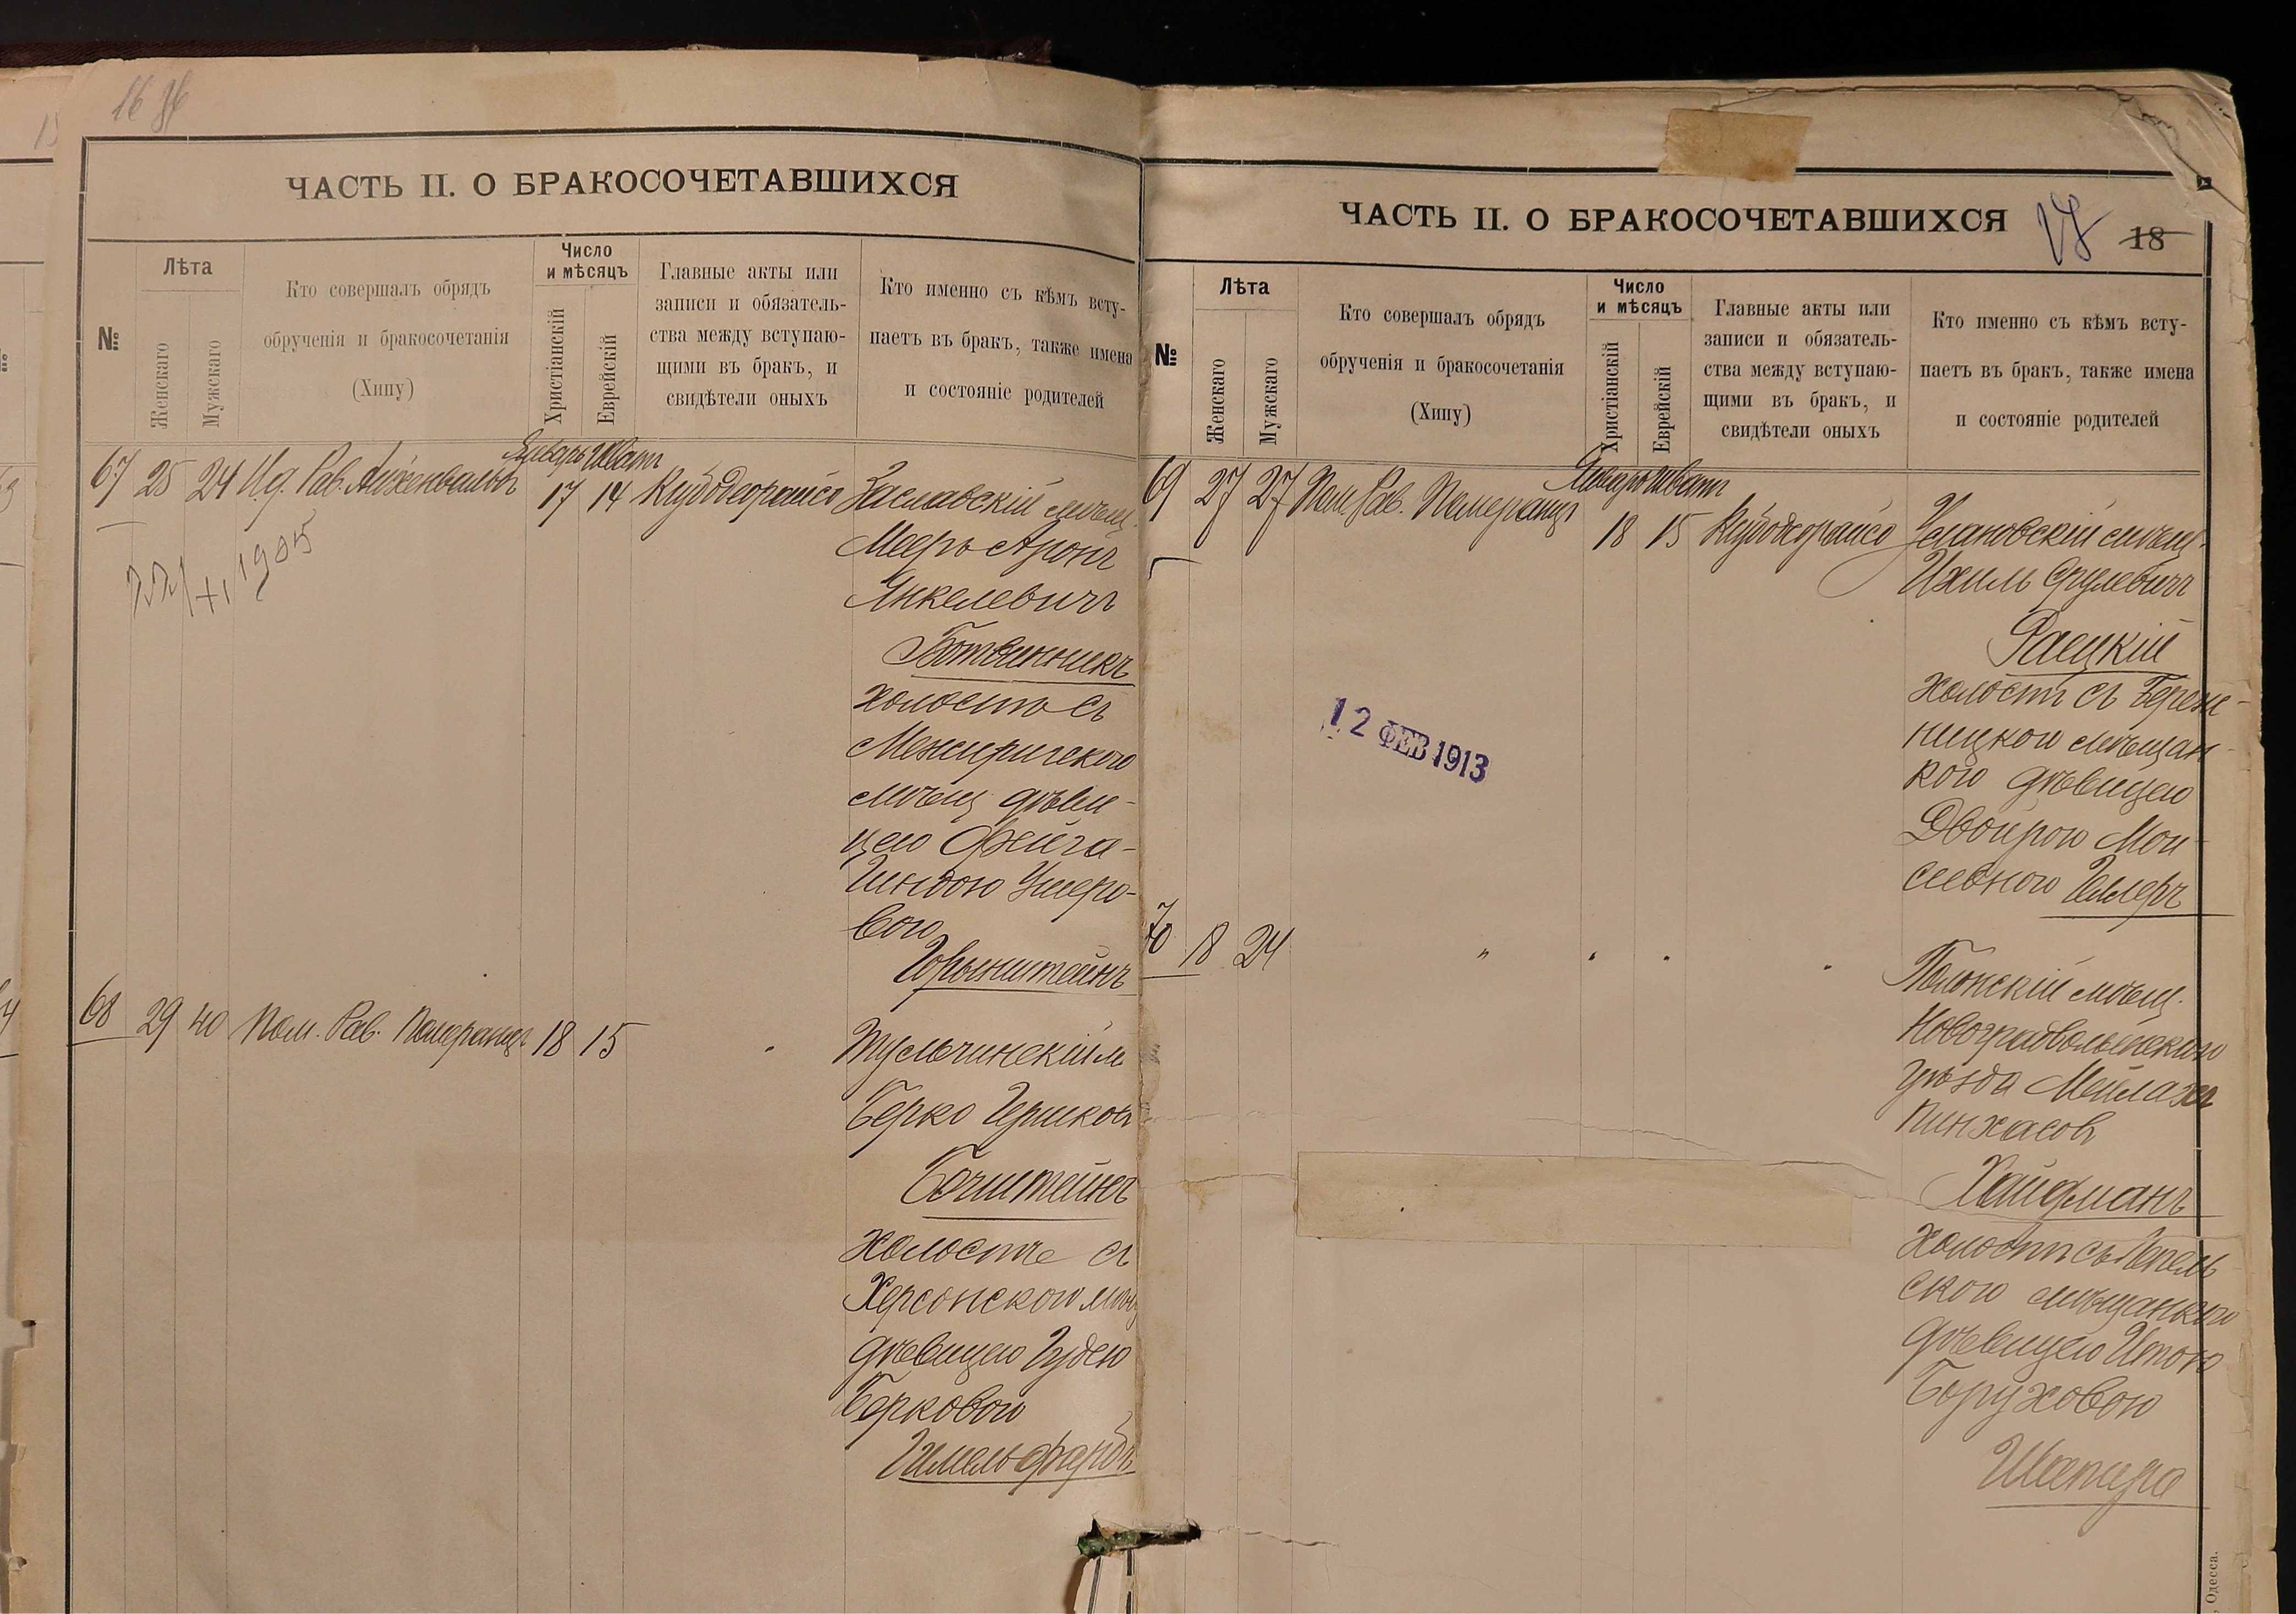 16
ЧАСТЬ II. О БРАКОСОЧЕТАВШИХСЯ
№
Лѣта
Женскаго
Мужскаго
Кто совершалъ обрядъ
обрученія и бракосочетанія
(Хипу)
Число
и мѣсяцъ
Христіанскій
Еврейскій
Главные акты или
записи и обязатель-
ства между вступаю-
щими въ бракъ, и
свидѣтели оныхъ
Кто именно съ кѣмъ всту-
паетъ въ бракъ, также имена
и состояніе родителей
Январь Шватъ
67 25 24 И.д. Рав. Айхенвальдъ 17 14 Заславскій мѣщ.
Мееръ Аронъ
Янкелевичъ
Ботвинникъ
холостъ съ
Межиричскою
мѣщ дѣви-
цею Фейга-
Гиндою Ушеро-
вою
Горынштейнъ
1905
68 29 40 Пом. Рав. Померанцъ 18 15 Тульчинскій м
Берко Гершковъ
Бочштейнъ
холостъ съ
Херсонскою мѣщ
дѣвицею Гудею
Берковою
Гимельфарбъ
ЧАСТЬ II. О БРАКОСОЧЕТАВШИХСЯ
17 18
№
Лѣта
Женскаго
Мужскаго
Кто совершалъ обрядъ
обрученія и бракосочетанія
(Хипу)
Число
и мѣсяцъ
Христіанскій
Еврейскій
Главные акты или
записи и обязатель-
ства между вступаю-
щими въ бракъ, и
свидѣтели оныхъ
Кто именно съ кѣмъ всту-
паетъ въ бракъ, также имена
и состояніе родителей
Январь Шватъ
69 27 27 Пом Рав. Померанцъ 18 15 Улановскій мѣщ.
Ихиль Срулевичъ
Раецкій
холостъ съ Береж-
ницкою мѣщан-
кою дѣвицею
Двойрою Мои-
сеевною Геллеръ
12 ФЕВ 1913
70 18 24 " " " " Полонскій мѣщ.
Новоградволынскаго
уѣзда Мейлахъ
Пинхасовъ
Хайфманъ
холостъ съ Лепель
скою мѣщанкою
дѣвицею Итою
Боруховою
Шапиро
Одесса.